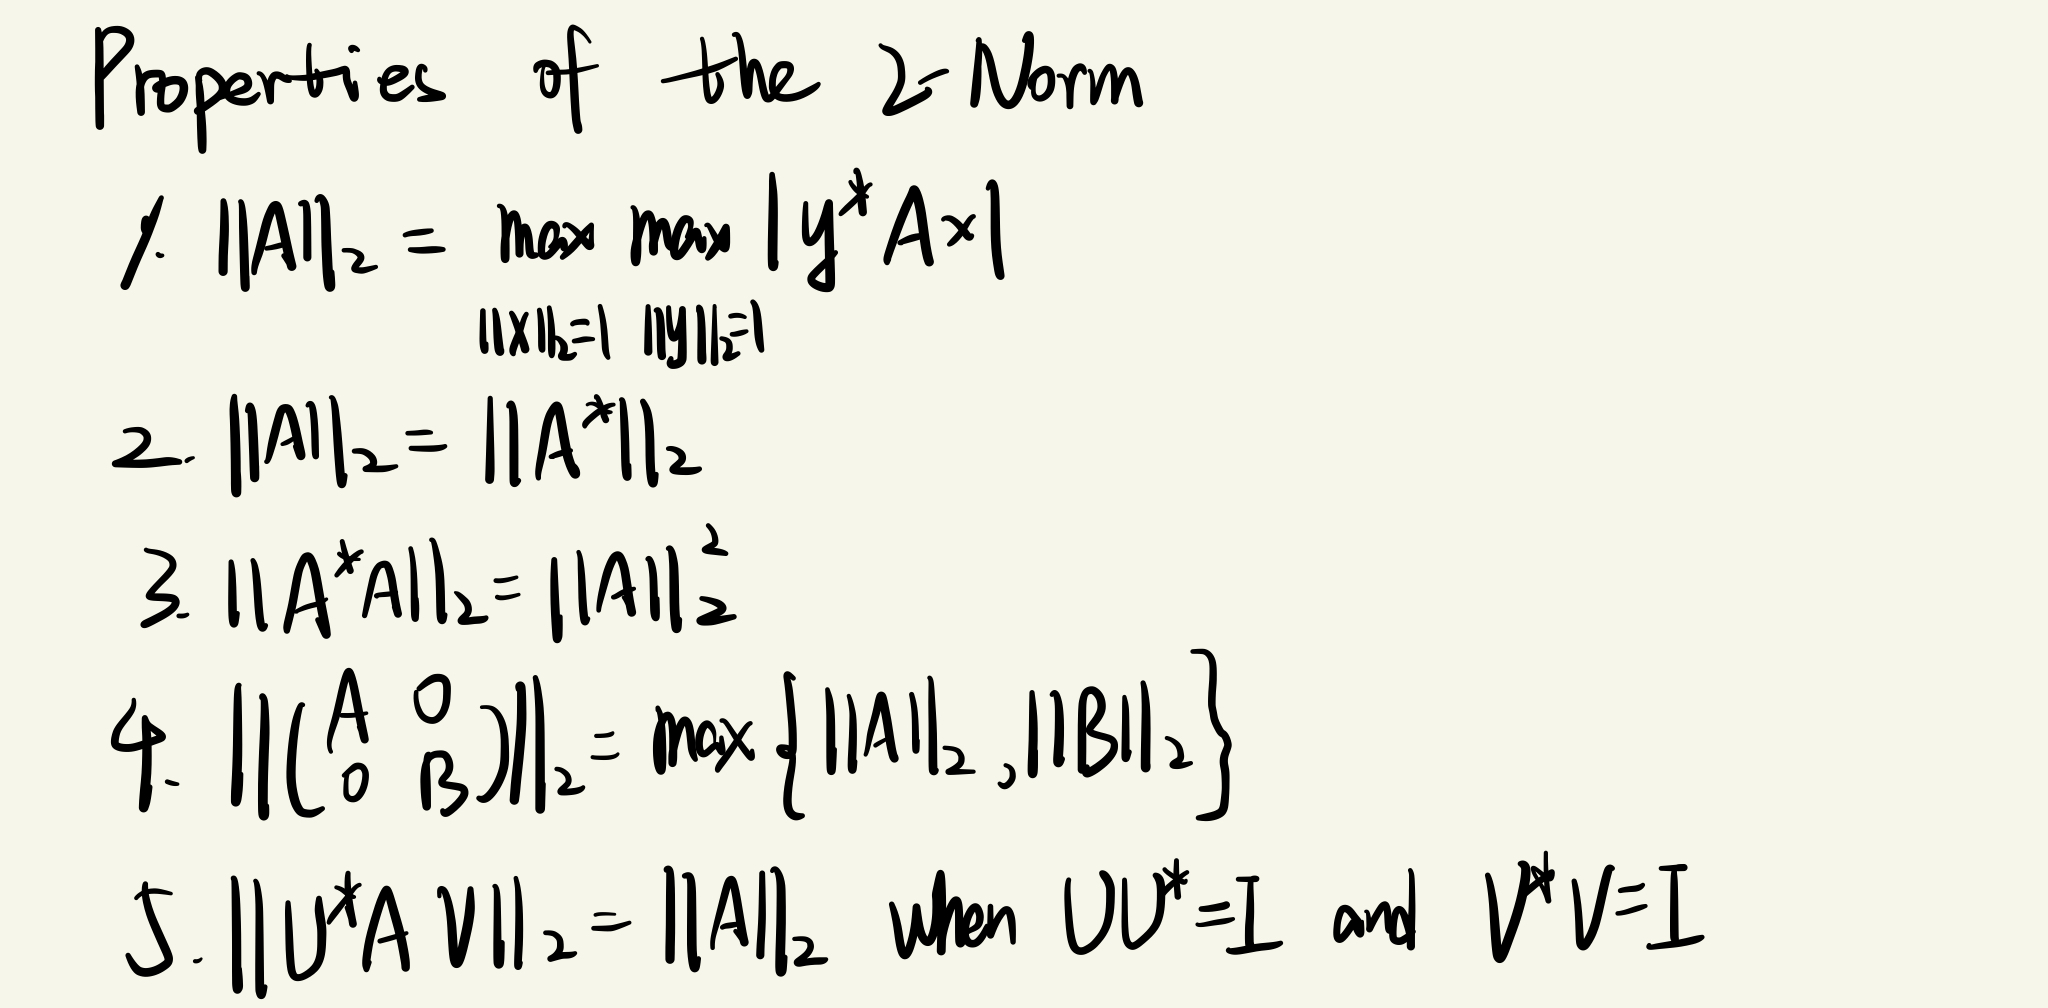 Properties of the 2-Norm
1. ||A||₂ = max max |y*Ax|
||x||₂=1 ||y||₂=1
2. ||A||₂ = ||A*||₂
3. ||A*A||₂ = ||A||₂²
4. ||(A 0
0 B)||₂ = max {||A||₂, ||B||₂}
5. ||U*AV||₂ = ||A||₂ when UU*=I and V*V=I